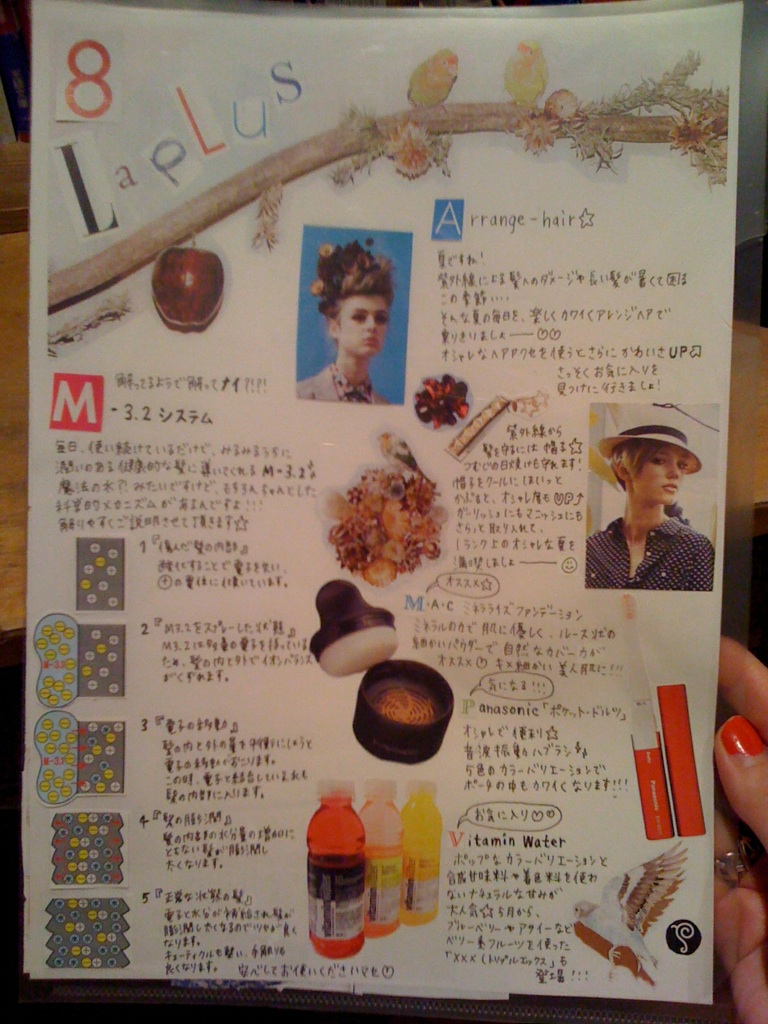 8
LaPLuS
Arrange-hair☆
夏ですね!
紫外線による髪へのダメージや長い髪が暑くて困る
この季節...
そんな夏の毎日を、楽しくカワイくアレンジヘアで
乗りきりましょ――♡♡
オシャレなヘアアクセを使うとさらにかわいさUP
さっそくお気に入りを
見つけに行きましょ!
M
解ってるようで解ってナイ?!!!
-3.2 システム
毎日、使い続けているだけで、みるみるうちに
潤いのある健康的な髪に導いてくれるM-3.2
魔法の水?!みたいですけど、もちろんちゃんとした
科学的メカニズムがあるんですよ!!!
解りやすくご説明させて頂きます☆
紫外線から
髪を守るには帽子☆
つむじの日焼けも守れます!
帽子をクールにほいっと
かぶると、オシャレ度もUP
ガーリッシュにもマニッシュにも
さらっと取り入れて、
1ランク上のオシャレな夏を
満喫しましょ――☺
1『傷んだ髪の内部』
酸化することで電子を失い、
⊕の電位に傾いています。
2『M3.2をスプレーした状態』
M3.2は多量の電子を持っている
ため、髪の内と外でイオンバランス
がくずれます。
3『電子の移動』
髪の内と外の量を均等にしようと
電子の移動がおこります。
この時、電子と結合している水も
髪の内部に入ります。
4『髪の膨潤』
髪の内部の水分量の増加に
ともない髪が膨潤し
太くなります。
5『正常な状態の髪』
電子と水分が補給され髪が
膨潤し太くなるのでツヤが良く
なります。
キューティクルも整い、手触りも
良くなります。
安心してお使いくださいマセ♡
オススメ☆
M・A・C ミネラライズファンデーション
ミネラルの力で肌に優しく、ルースリピの
細かいパウダーで自然なカバー力が
オススメ♡ キメ細かい美人肌に!!!
気になる!!!
Panasonic「ポケットドルツ」
オシャレで便利☆
音波振動ハブラシ
5色のカラーバリエーションで
ポーチの中もカワイくなります!!!
Panasonic
お気に入り♡♡
Vitamin Water
ポップなカラーバリエーションと
合成甘味料や着色料を使わ
ないナチュラルな甘みが
大人気☆5月から、
ブルーベリーやアサイーなど
ベリー系フルーツを使った
「XXX(トリプルエックス)」も
登場!!!
M-3.2
M-3.2